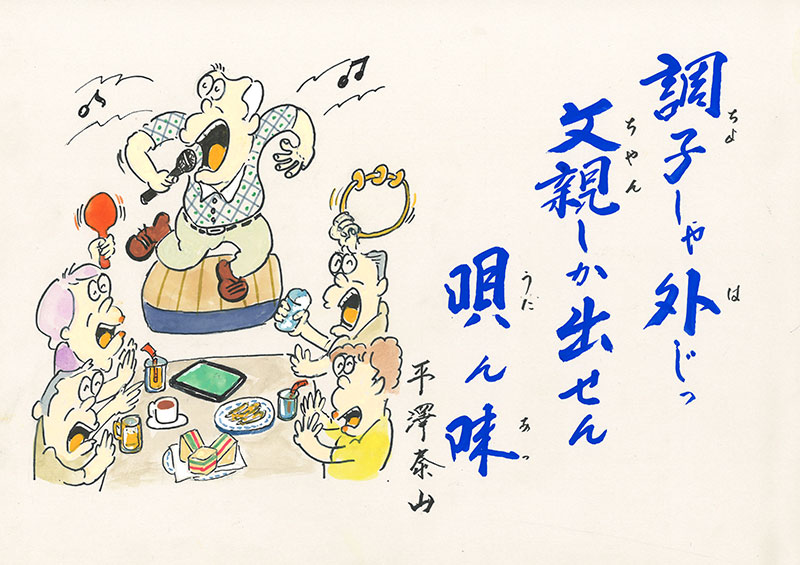 調子しゃ外じっ
ちょ は
父親しか出せん
ちゃん
唄ん味
うだ あっ
平澤泰山